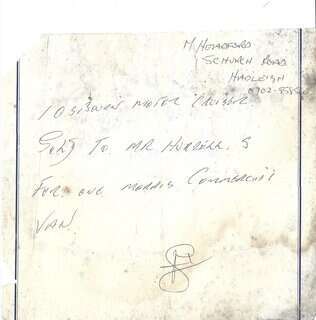 M. Headford
5 Church Road
Hadleigh
0702-555
1 Osborn Motor Cruiser
Sold To Mr Hurrell. S
For one Morris Commercial
Van